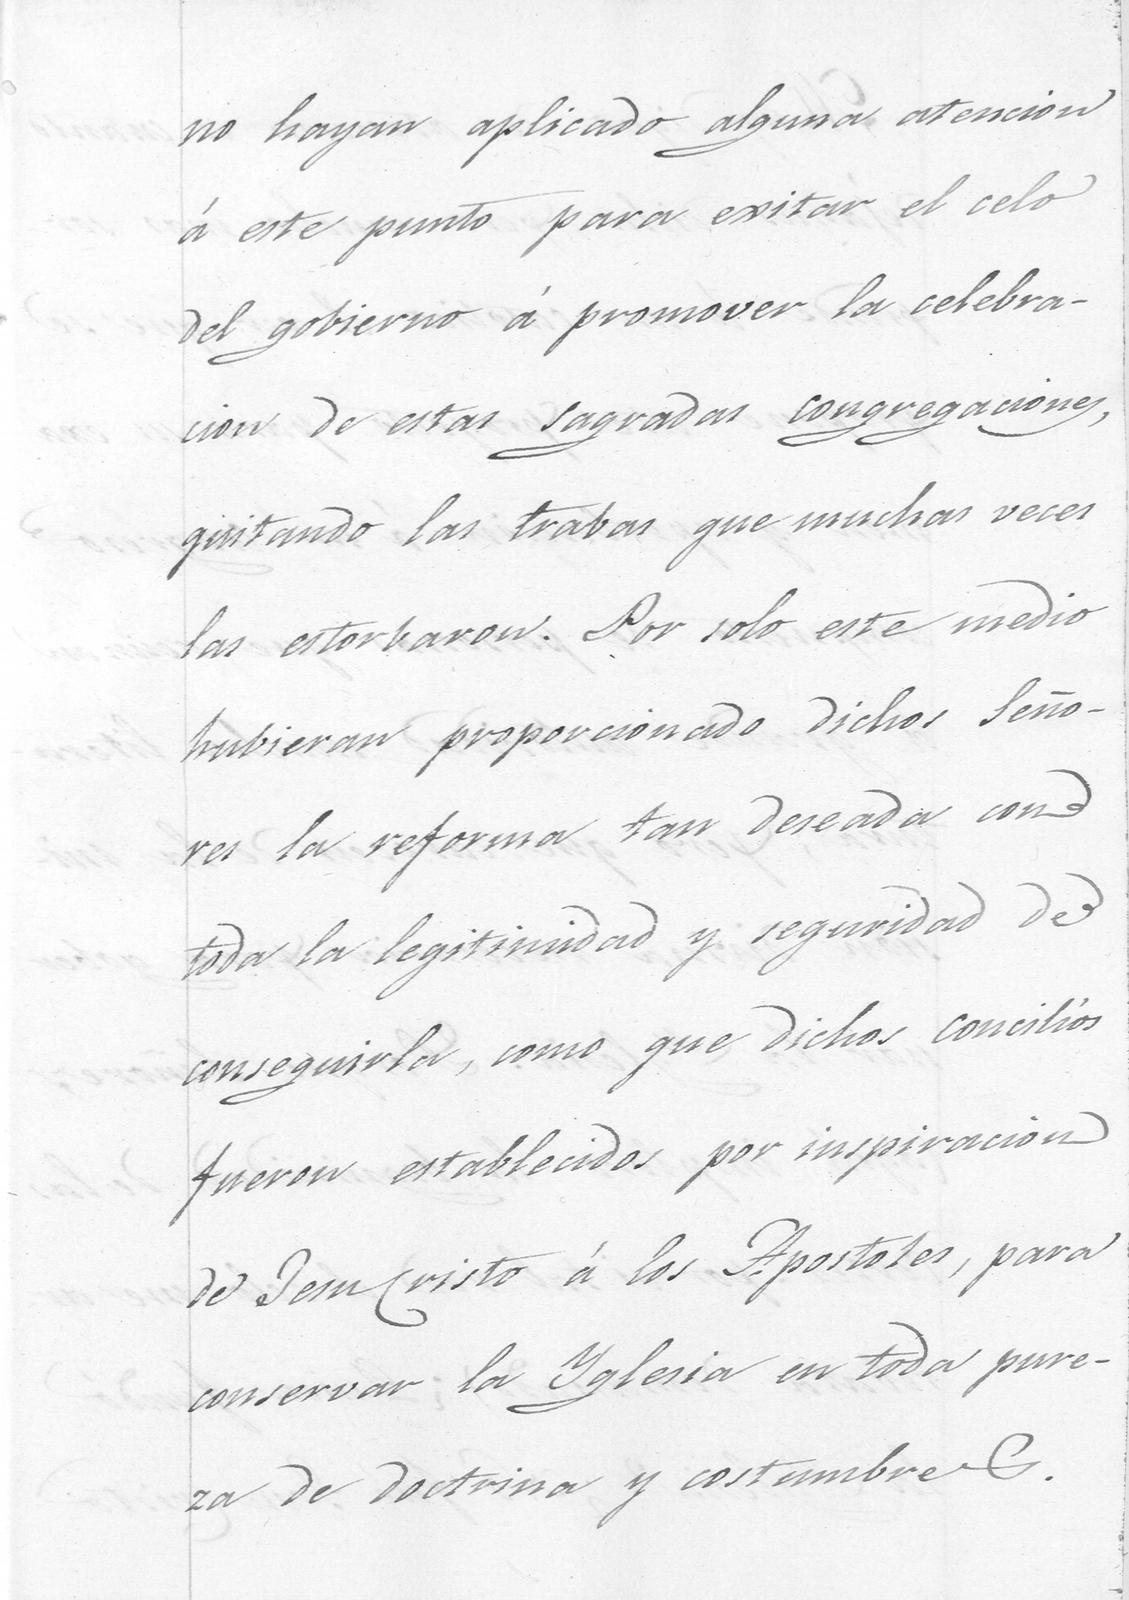 no hayan aplicado alguna atencion
á este punto para exitar el celo
del gobierno á promover la celebra-
cion de estas sagradas congregaciones,
quitando las trabas que muchas veces
las estorbaron. Por solo este medio
hubieran proporcionado dichos Seño-
res la reforma tan deseada con
toda la legitimidad y seguridad de
conseguirla, como que dichos concilios
fueron establecidos por inspiracion
de JesuCristo á los Apostoles, para
conservar la Yglesia en toda pure-
za de doctrina y costumbres.